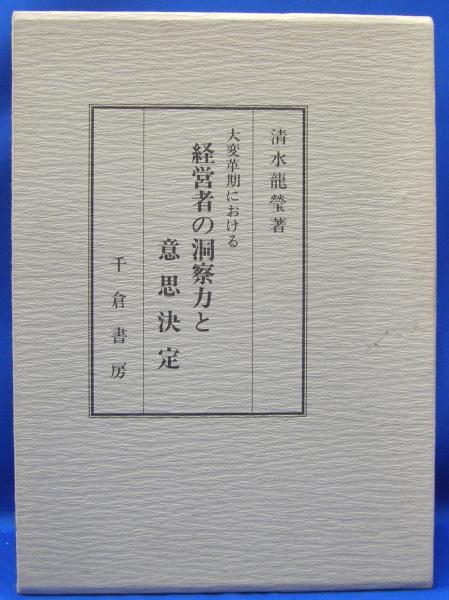 清水龍瑩著
大変革期における
経営者の洞察力と
意思決定
千倉書房